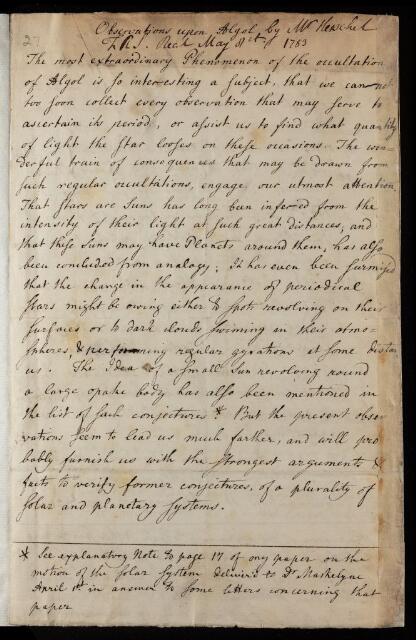 27
Observations upon Algol by Mr Herschel
F.R.S. Read May 8th 1783
The most extraordinary Phenomenon of the occultation
of Algol is so interesting a subject, that we cannot
too soon collect every observation that may serve to
ascertain its period, or assist us to find what quantity
of light the star looses on these occasions. The won-
derful train of consequences that may be drawn from
such regular occultations, engage our utmost attention.
That stars are Suns has long been infered from the
intensity of their light at such great distances, and
that these Suns may have Planets around them, has also
been concluded from analogy; It has even been surmised
that the change in the appearance of periodical
stars might be owing either to spots revolving on their
surfaces or to dark clouds swiming in their atmo-
spheres, & performing regular gyrations at some distan
us. The Idea of a small Sun revolving round
a large opake body has also been mentioned in
the list of such conjectures * But the present obser
vations seem to lead us much farther, and will pro
bably furnish us with the strongest arguments &
facts to verify former conjectures, of a plurality of
solar and planetary systems.
* See explanatory Note to page 17 of my paper on the
motion of the solar System deliver'd to Dr Maskelyne
April 1st in answer to some letters concerning that
paper